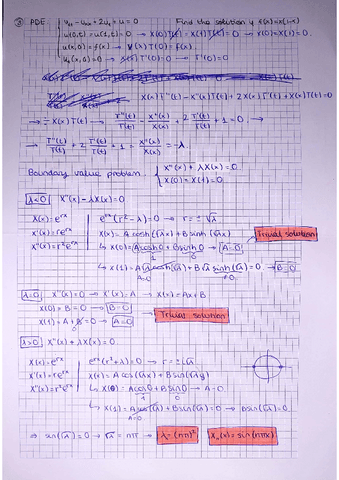 ③ PDE. u_tt - u_xx + 2u_t + u = 0 Find the solution if f(x)=x(1-x)
u(0,t) = u(1,t) = 0 → X(0)T(t) = X(1)T(t) = 0 → X(0)=X(1)=0.
u(x,0) = f(x) → X(x)T(0) = f(x).
u_t(x,0) = 0 → X(x)T'(0) = 0 → T'(0)=0
X(x)T''(t) - X''(x)T(t) + 2X(x)T'(t) + X(x)T(t) = 0
→ ÷ X(x)T(t) → T''(t)/T(t) - X''(x)/X(x) + 2 T'(t)/T(t) + 1 = 0 →
→ T''(t)/T(t) + 2 T'(t)/T(t) + 1 = X''(x)/X(x) = -λ.
Boundary value problem. { X''(x) + λX(x) = 0.
X(0) = X(1) = 0.
λ<0 X''(x) - λX(x) = 0
X(x) = e^rx | e^rx(r² - λ) = 0 → r = ±√λ
X'(x) = re^rx | X(x) = A cosh(√λx) + B sinh(√λx) Trivial solution
X''(x) = r²e^rx | → X(0) = A cosh 0 + B sinh 0 → A=0
→ X(1) = A√λ cosh(√λ) + B√λ sinh(√λ) = 0 → B=0
A=0 ≠0
λ=0 X''(x) = 0 → X'(x) = A → X(x) = Ax + B
X(0) = B = 0 → B=0
X(1) = A + B = 0 → A=0 → Trivial solution
λ>0 X''(x) + λX(x) = 0.
X(x) = e^rx | e^rx(r² + λ) = 0 → r = ±i√λ
X'(x) = re^rx | X(x) = A cos(√λx) + B sin(√λx)
X''(x) = r²e^rx | → X(0) = A cos 0 + B sin 0 → A=0.
→ X(1) = A cos(√λ) + B sin(√λ) = 0 → B sin(√λ) = 0
A=0
⇒ sin(√λ) = 0 → √λ = nπ → λ = (nπ)² X_n(x) = sin(nπx)